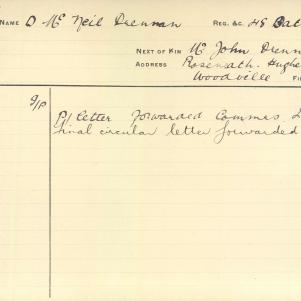 NAME D McNeil Drennan REG. &C. 48 Bat
NEXT OF KIN Mr John Drenn
ADDRESS Roseneath. Hughe
Woodville
9/P
P/letter forwarded Commrs
final circular letter forwarded